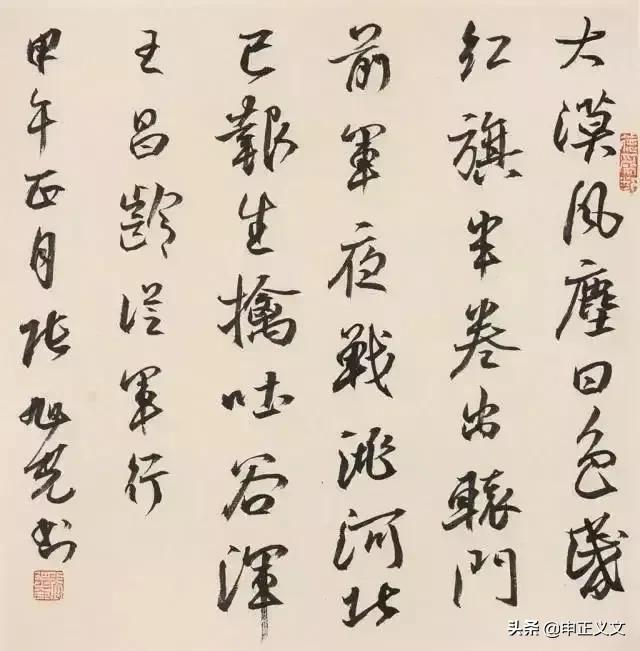 大漠風塵日色昏
紅旗半卷出轅門
前軍夜戰洮河北
已報生擒吐谷渾
王昌齡從軍行
甲午正月張旭光書
头条 @申正义文